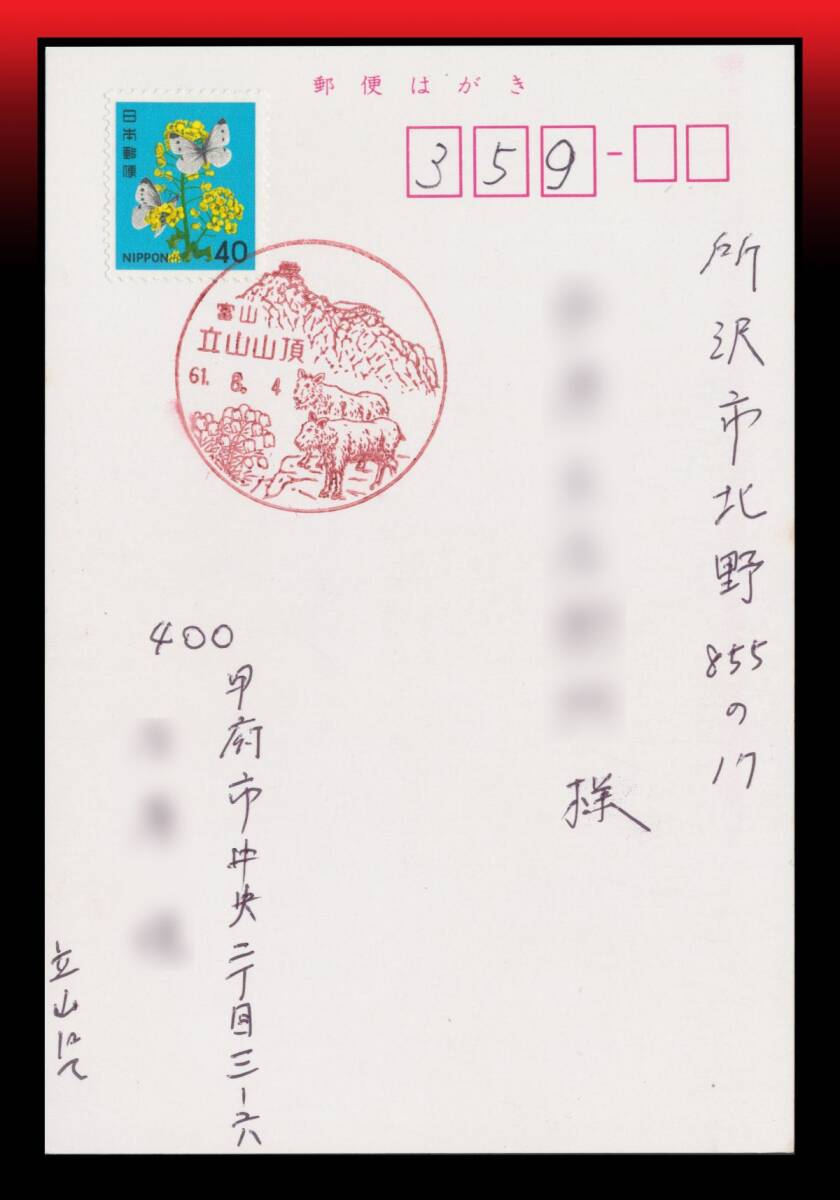 郵便はがき
日本郵便
NIPPON 40
359
富山
立山山頂
61. 8. 4
所沢市北野855の17
様
400
甲府市中央二丁目三-六
立山にて